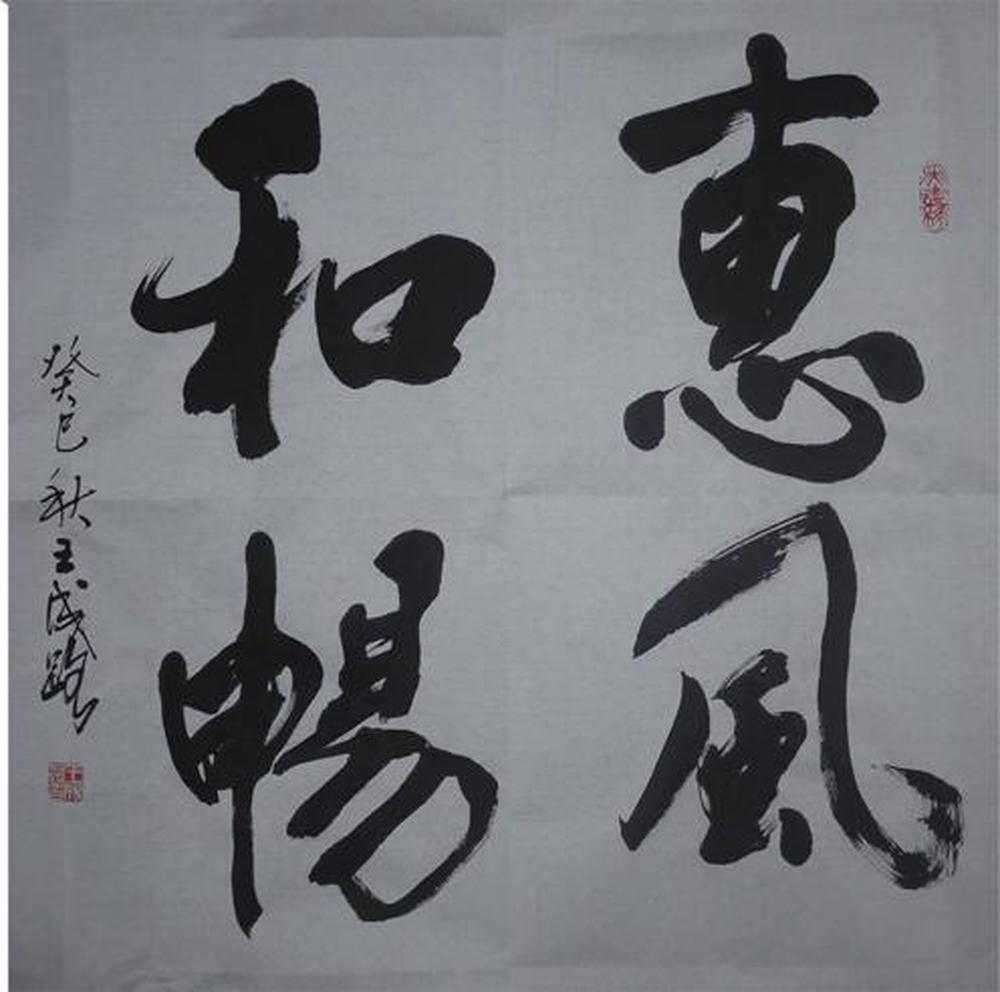 惠風
和暢
癸巳秋王成